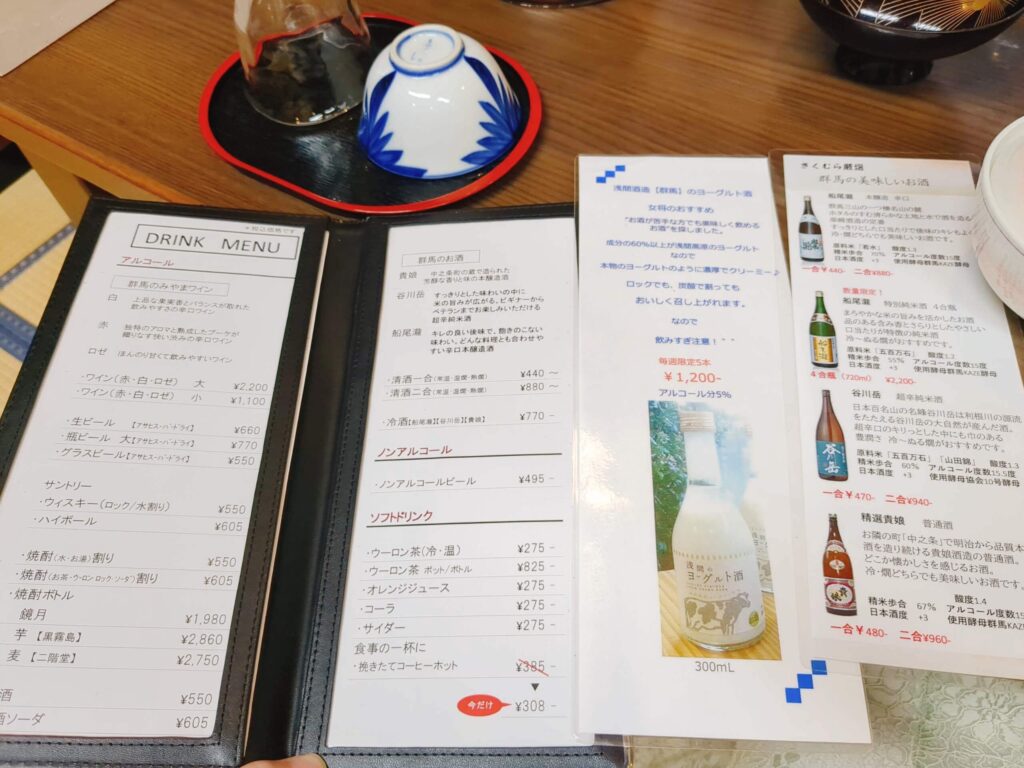 *税込価格です
DRINK MENU
アルコール
群馬のみやまワイン
白 上品な果実香とバランスが取れた
飲みやすさの辛口ワイン
赤 独特のアロマと熟成したブーケが
織りなす快い渋みの辛口ワイン
ロゼ ほんのり甘くて飲みやすいワイン
・ワイン(赤・白・ロゼ) 大 ¥2,200
・ワイン(赤・白・ロゼ) 小 ¥1,100
・生ビール 【アサヒスーパードライ】 ¥660
・瓶ビール 大【アサヒスーパードライ】 ¥770
・グラスビール【アサヒスーパードライ】 ¥550
サントリー
・ウィスキー(ロック/水割り) ¥550
・ハイボール ¥605
・焼酎(水・お湯)割り ¥550
・焼酎(お茶・ウーロン・ロック・ソーダ)割り ¥605
・焼酎ボトル
鏡月 ¥1,980
芋 【黒霧島】 ¥2,860
麦 【二階堂】 ¥2,750
酒 ¥550
酒ソーダ ¥605
群馬のお酒
貴娘 中之条町の蔵で造られた
芳醇な香りと味の本醸造酒
谷川岳 すっきりとした味わいの中に
米の旨みが広がる、ビギナーから
ベテランまでお楽しみいただける
超辛純米酒
船尾瀧 キレの良い後味で、飽きのこない
味わい。どんな料理とも合わせや
すい辛口本醸造酒
・清酒一合(常温・温燗・熱燗) ¥440 ～
・清酒二合(常温・温燗・熱燗) ¥880 ～
・冷酒【船尾瀧】【谷川岳】【貴娘】 ¥770 -
ノンアルコール
・ノンアルコールビール ¥495 -
ソフトドリンク
・ウーロン茶(冷・温) ¥275 -
・ウーロン茶 ポット/ボトル ¥825 -
・オレンジジュース ¥275 -
・コーラ ¥275 -
・サイダー ¥275 -
食事の一杯に
・挽きたてコーヒーホット ¥385 -
▼
今だけ ¥308 -
浅間酒造【群馬】のヨーグルト酒
女将のおすすめ
"お酒が苦手な方でも美味しく飲める
お酒"を探しました。
成分の60%以上が浅間高原のヨーグルト
なので
本物のヨーグルトのように濃厚でクリーミー♪
ロックでも、炭酸で割っても
おいしく召し上がれます。
なので
飲みすぎ注意!｀｀
毎週限定5本
¥1,200-
アルコール分5%
浅間の
ヨーグルト酒
300mL
さくむら厳選
群馬の美味しいお酒
船尾瀧 本醸造 辛口
群馬三山の一つ榛名山の麓
ホタルのすむ清らかな土地と水で酒を造る
辛口酒造の定番
すっきりした口当たりで後味のキレもよく
冷・燗どちらでも美味しいお酒です。
原料米「若水」 酸度1.3
精米歩合 70% アルコール度数15度
日本酒度 +3 使用酵母群馬KAZE酵母
一合¥440- 二合¥880-
数量限定!
船尾瀧 特別純米酒 4合瓶
まろやかな米の旨みを活かしたお酒
品のある含み香とさらりとしたやさしい
口当たりが特徴の純米酒
冷～ぬる燗がおすすめです。
原料米「五百万石」 酸度1.2
精米歩合 55% アルコール度数15度
日本酒度 +3 使用酵母群馬KAZE酵母
4合瓶 (720ml) ¥2,200-
谷川岳 超辛純米酒
日本百名山の名峰谷川岳は利根川の源流
をたたえる谷川岳の大自然が産んだ酒。
超辛口のキリっとした中にも巾のある
豊潤さ 冷～ぬる燗がおすすめです。
原料米「五百万石」「山田錦」 酸度1.3
精米歩合 60% アルコール度数15.5度
日本酒度 +3 使用酵母協会10号酵母
一合¥470- 二合¥940-
精選貴娘 普通酒
お隣の町「中之条」で明治から品質本
酒を造り続ける貴娘酒造の普通酒。
どこか懐かしさを感じるお酒。
冷・燗どちらでも美味しいお酒です
酸度1.4
精米歩合 67% アルコール度数15
日本酒度 +3 使用酵母群馬KAZE
一合¥480- 二合¥960-